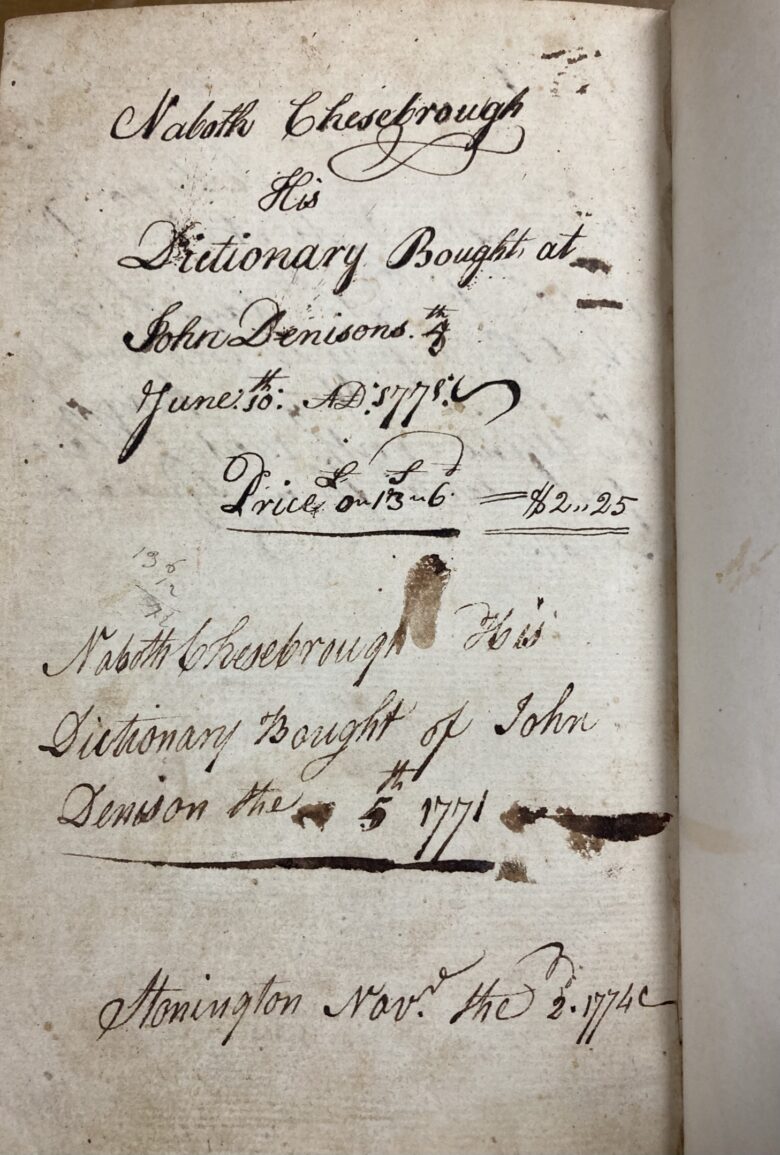 Naboth Chesebrough
His
Dictionary Bought at
John Denisons. 5th
June. 10th: AD: 1771.
Price £0,,13s,,6d. = $2,,25
13 6
12
Naboth Chesebrough His
Dictionary Bought of John
Denison the 5th 1771
Stonington Novr. the 2d. 1774